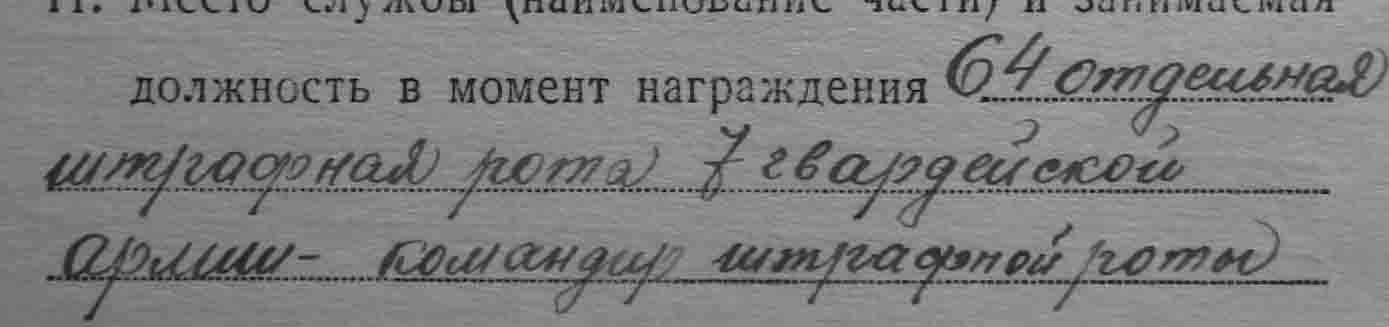 11. Место службы (наименование части) и занимаемая
должность в момент награждения 64 отдельная
штрафная рота 7 гвардейской
армии - командир штрафной роты